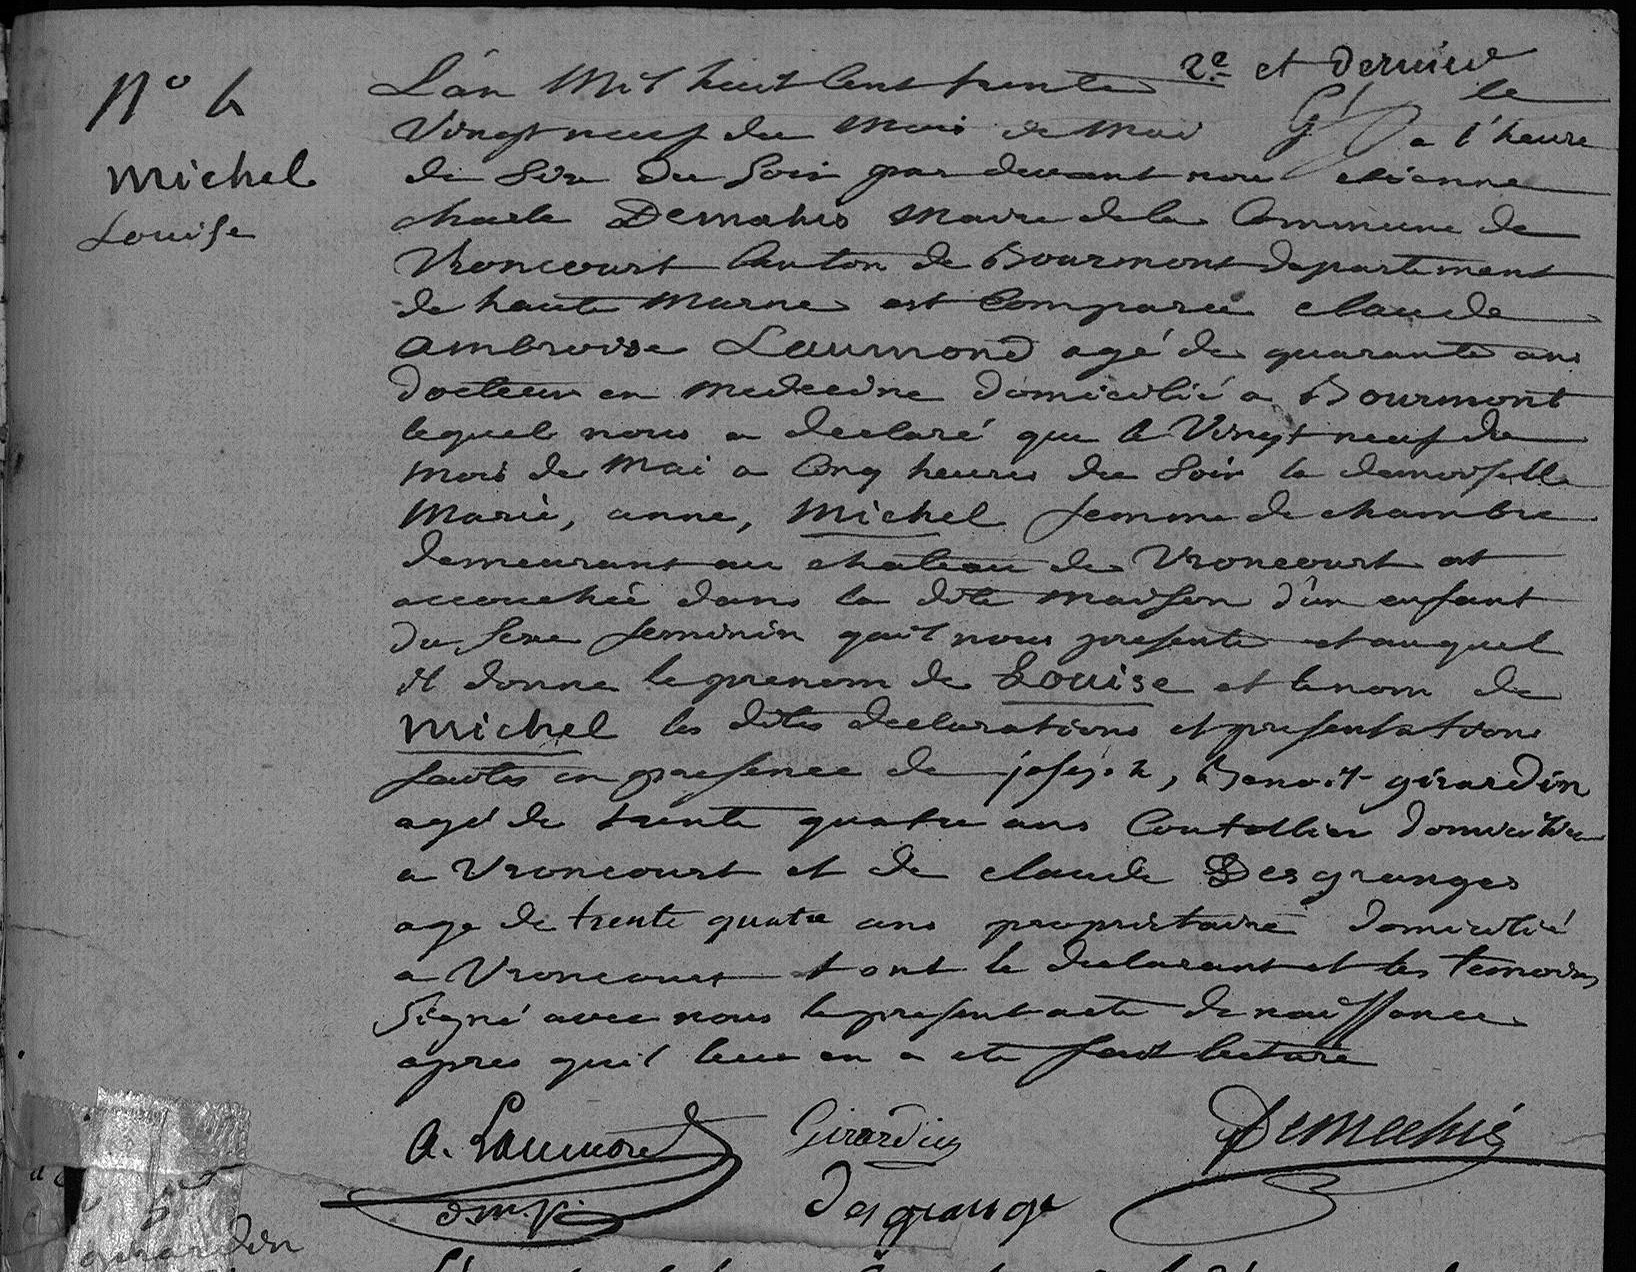 2e et dernier
N° 6
Michel
Louise
L'an Mil huit Cent trente le
Vingt neuf du Mois de Mai a l'heure
de Six du Soir par devant nou etienne
charle Demahis Maire de la Commune de
Vroncourt Canton de Bourmont departement
de haute Marne est Comparu claude
ambroise Laumond agé de quarante ans
docteur en Medecine domicilié a Bourmont
lequel nous a declaré que le Vingt neuf du
mois de Mai a Cinq heures du Soir la demoiselle
Marie, anne, Michel femme de chambre
demeurant au chateau de Vroncourt est
accouchée dans la dite maison d'un enfant
du Sexe feminin qu'il nous presente et auquel
il donne le prenom de Louise et le nom de
Michel les dites declarations et presentations
faites en presence de joseph, Benoit girardin
agé de trente quatre ans Coutellier domicilié
a Vroncourt et de claude Desgranges
age de trente quatre ans proprietaire domicilié
a Vroncourt et ont le declarant et les temoins
Signé avec nous le present acte de naissance
apres quil leur en a ete fait lecture
A. Laumond Girardin Demahis
d.m.p. desgrange
girardin